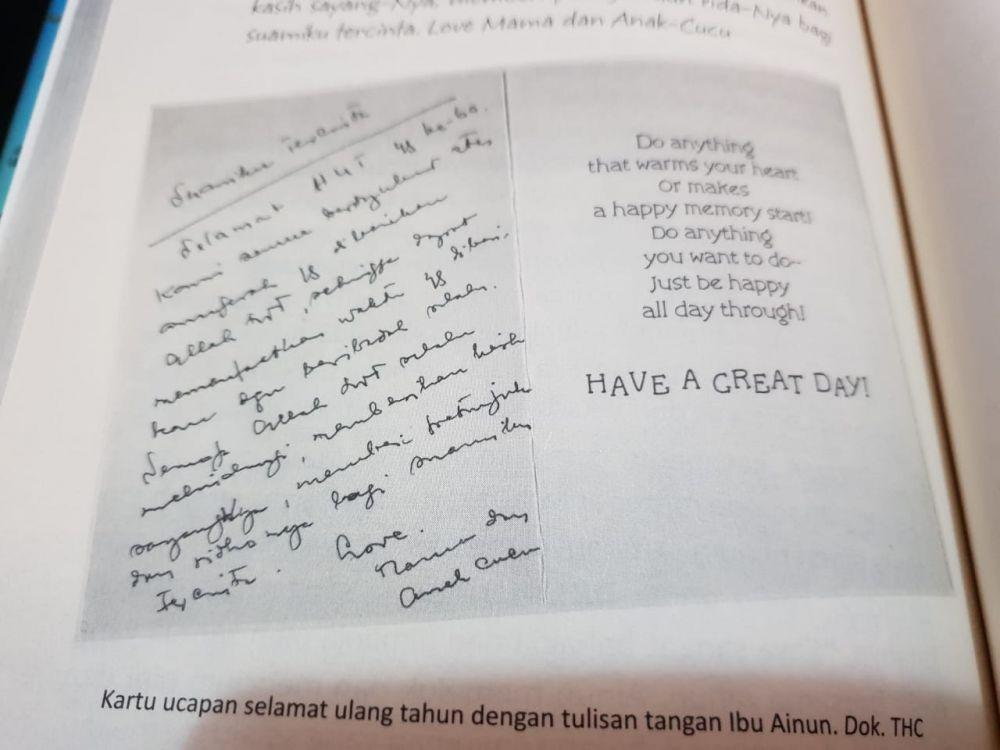 kasih sayang-Nya,
suamiku tercinta. Love Mama dan Anak-Cucu
Suamiku tercinta
Selamat HUT yg ke-60.
Kami semua bersyukur atas
anugerah yg diberikan
Allah SWT, sehingga dapat
memanfaatkan waktu yg diberi-
kan agar beribadah selalu.
Semoga Allah SWT selalu
melindungi, memberikan kasih
sayangNya, memberi petunjuk
dan ridhonya bagi suamiku
tercinta. Love.
Mama dan
Anak Cucu
Do anything
that warms your heart
Or makes
a happy memory start!
Do anything
you want to do--
Just be happy
all day through!
HAVE A GREAT DAY!
Kartu ucapan selamat ulang tahun dengan tulisan tangan Ibu Ainun. Dok. THC